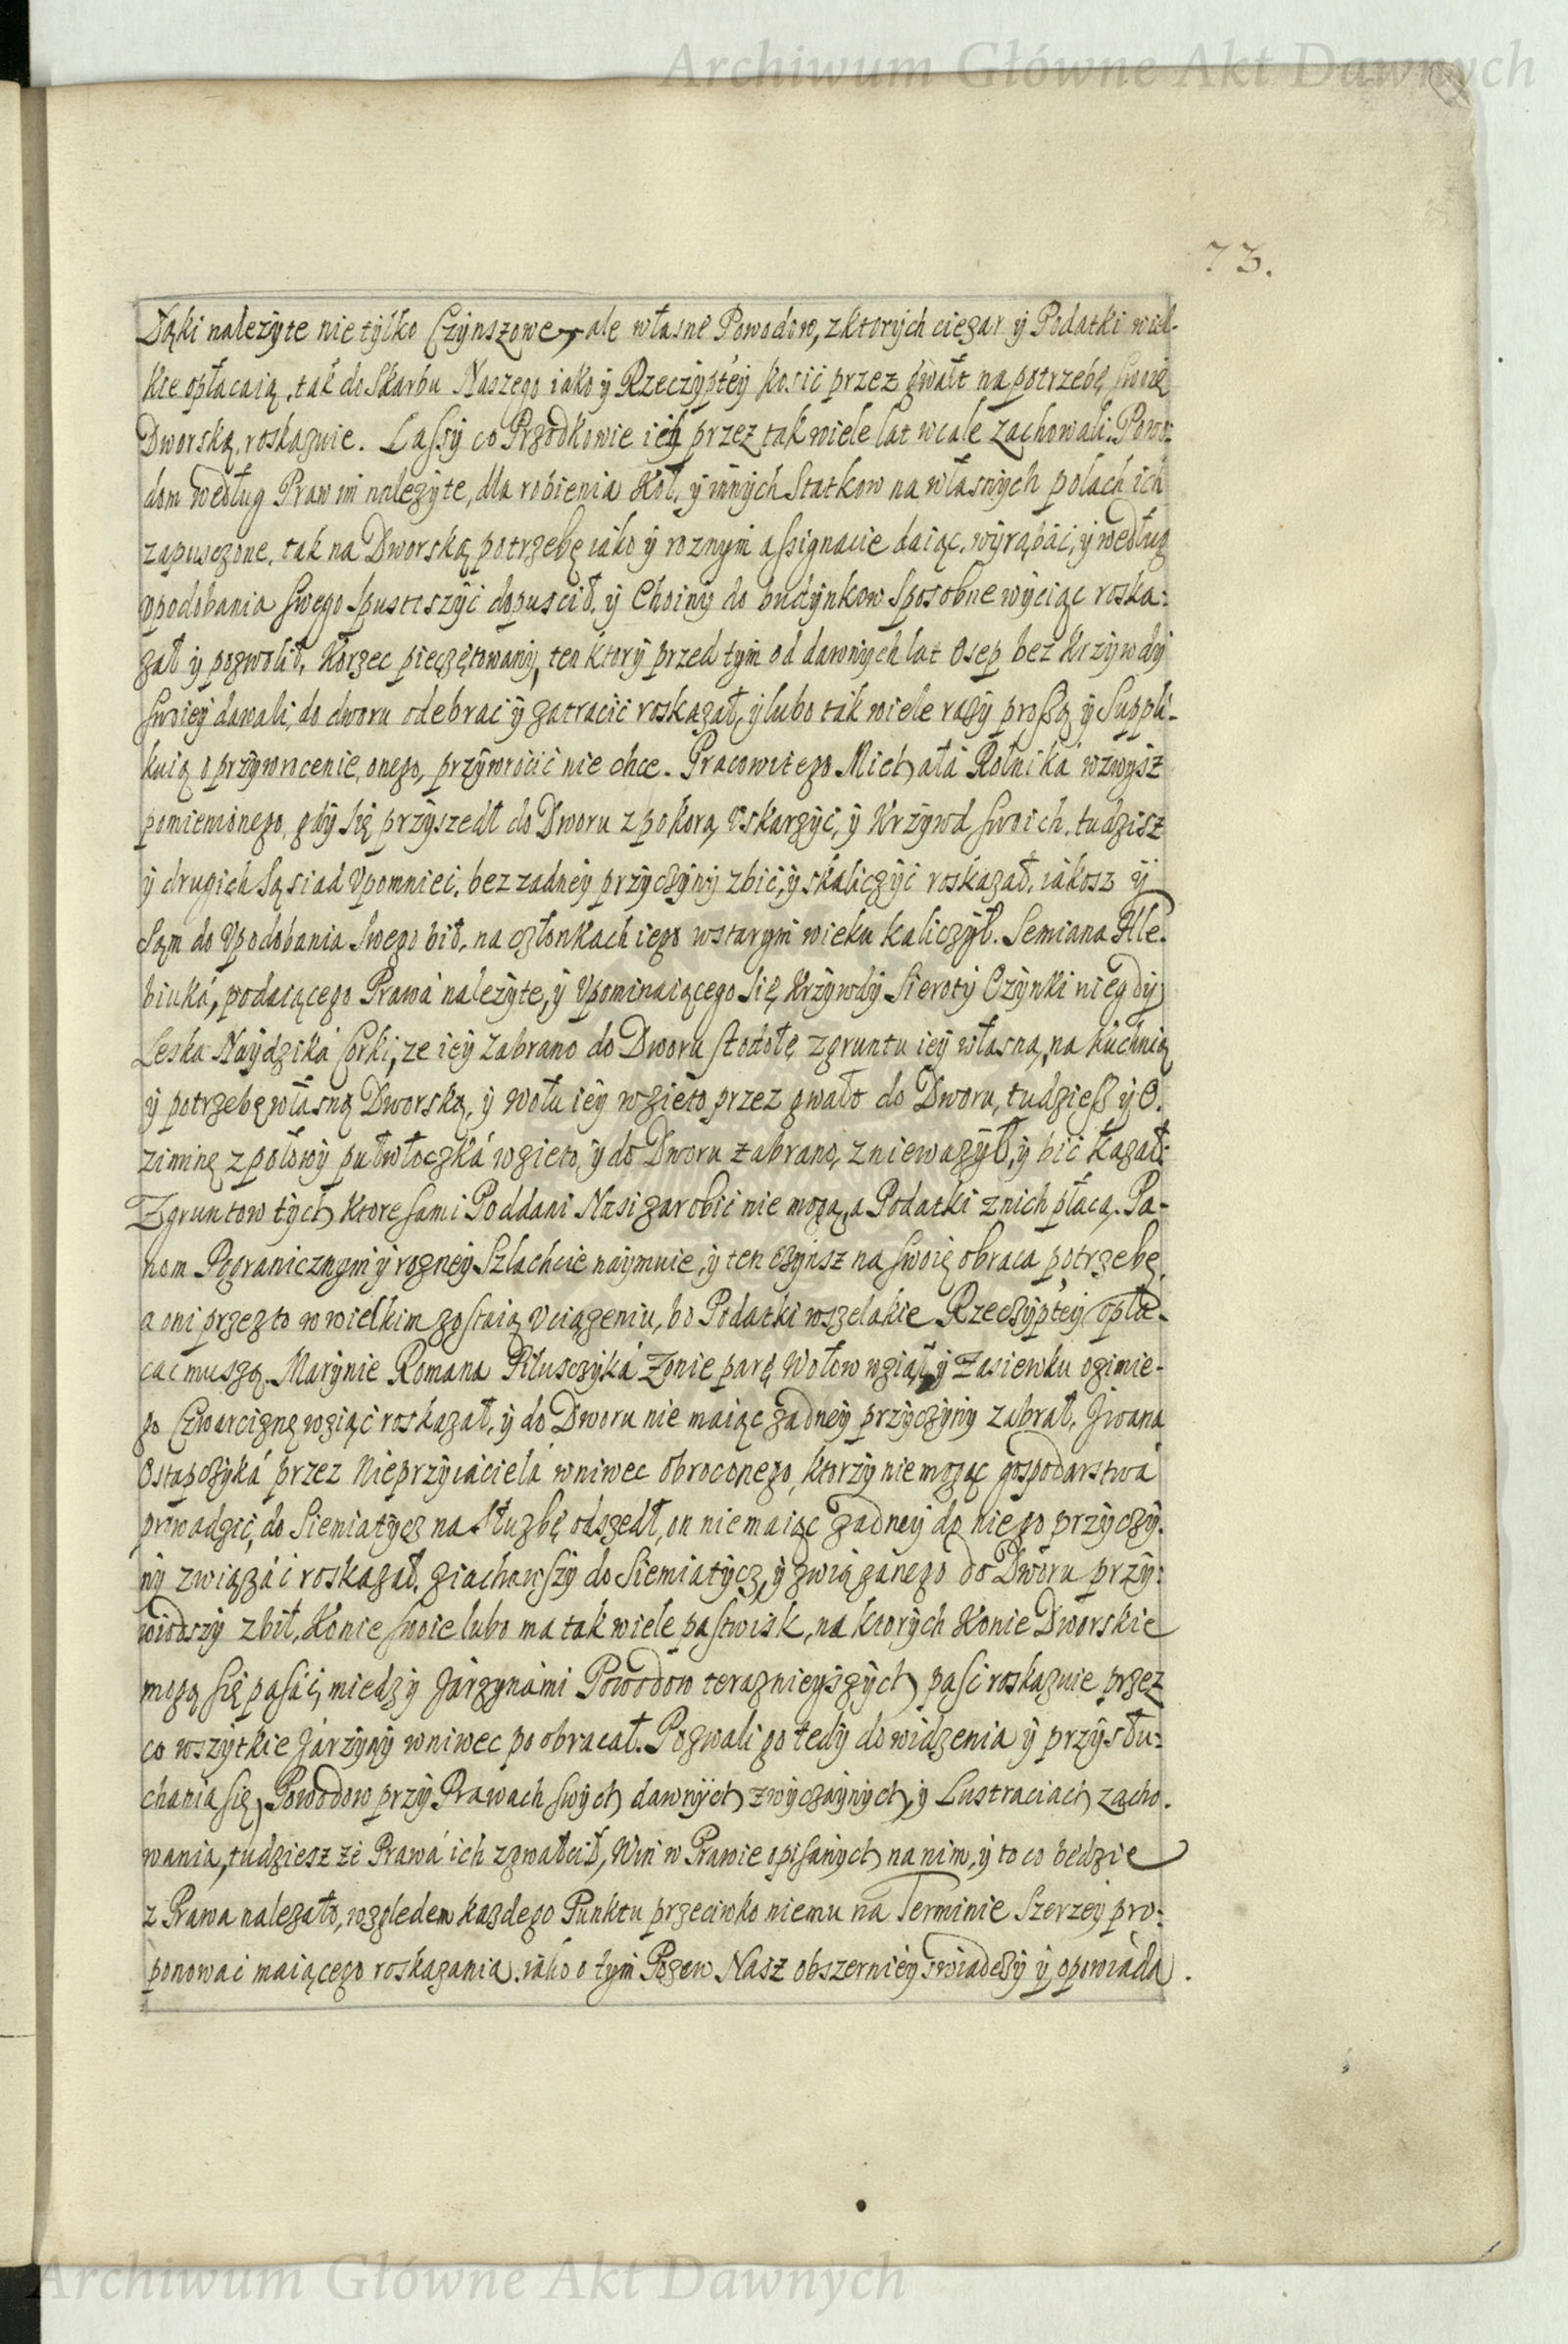 Archiwum Główne Akt Dawnych
73.
Łąki nalezÿte nie tÿlko Czÿnszowe, ale własne Powodow, z ktorÿch ciezar ÿ Podatki wiel-
kie opłacaią, tak do Skarbu Naszego iako ÿ Rzeczÿptėÿ kosić przez gwałt na potrzebę swoię
Dworską roskazuie. Lassÿ co Przodkowie ich przez tak wiele lat wcale zachowali. Powo:
dom według Praw im nalezÿte, dla robienia Koł, ÿ innÿch Statkow na własnÿch polach ich
zapuszczone, tak na Dworską potrzebę iako ÿ roznÿm assignacie daiąc, wÿrąbać, ÿ według
upodobania swego spustoszÿć dopuscił, ÿ Choinÿ do budÿnkow sposobne wÿciąc roska:
zał ÿ pozwolił, Korzec pieczętowanÿ, ten ktorÿ przed tÿm od dawnÿch lat Osep bez Krzÿwdÿ
swoieÿ dawali, do dworu odebrać ÿ zatracić roskazał, ÿ lubo tak wiele razÿ proszą ÿ Suppli-
kuią o przÿwrocenie onego, przÿwrocić nie chce. Pracowitego Michała Rolnika wzwÿsz
pomienionego, gdÿ się przÿszedł do Dworu z pokorą Uskarzÿć, ÿ Krzÿwd swoich, tudzisz
ÿ drugich Sąsiad Upomnieć, bez zadneÿ przÿczÿnÿ zbić, ÿ skaliczÿć roskazał, iakosz ÿ
Sąm do Upodobania Swego bił, na członkach iego w starÿm wieku kaliczÿł. Semiana Hle.
biuka, podaiącego Prawa nalezÿte, ÿ Upominaiącego się Krzÿwdÿ Sierotÿ Ozÿnki niegdÿ
Leska Naÿdzika Corki, ze ieÿ zabrano do Dworu stodołę z gruntu ieÿ własną, na kuchnią
ÿ potrzebę własną Dworską, ÿ wołu ieÿ wzieto przez gwałt do Dworu, tudziesz ÿ O.
ziminę z połowÿ pułwłoczka wzieto, ÿ do Dworu zabrano, zniewazÿł, ÿ bić kazał:
Z gruntow tÿch ktore sami Poddani Nasi zarobić nie mogą, a Podatki z nich płacą. Pa-
nom Pogranicznÿm ÿ rozneÿ Szlachcie naÿmuie, ÿ ten czÿnsz na swoię obraca potrzebę,
a oni przez to w wielkim zostaią Uciązeniu, bo Podatki wszelakie Rzeczÿptėÿ opła-
cać muszą. Marÿnie Romana Żonie parę Wołow wziął, ÿ Zasiewku ozimie-
go Czwarciznę wziąć roskazał, ÿ do Dworu nie maiąc zadneÿ przÿczÿnÿ zabrał, Jwana
Ostapczÿka przez Nieprzÿiaciela wniwec obroconego, ktorzÿ nie mogąc gospodarstwa
prowadzić, do Siemiatÿcz na służbę odszedł, on nie maiąc zadneÿ do niego przÿczÿ.
nÿ związać roskazał, ziachawszÿ do Siemiatÿcz, ÿ związanego do Dworu przÿ:
wiodszÿ zbił, Konie swoie lubo ma tak wiele pastwisk, na ktorÿch Konie Dworskie
mogą się paść, miedzÿ Jarzÿnami Powodow teraznieÿszÿch paść roskazuie przez
co wszÿtkie Jarzÿnÿ wniwec poobracał. Pozwali go tedÿ do widzenia ÿ przÿsłu:
chania się, Powodow przÿ Prawach swÿch dawnÿch zwÿczaÿnÿch, ÿ Lustraciach zacho.
wania, tudziesz ze Prawa ich zgwałcił, Win w Prawie opisanÿch na nim, ÿ to co bedzie
z Prawa nalezało, wzgledem kazdego Punktu przeciwko niemu na Terminie Szerzeÿ pro:
ponować maiącego roskazania, iako o tÿm Pozew Nasz obszernieÿ swiadczÿ ÿ opowiada.
Archiwum Główne Akt Dawnych